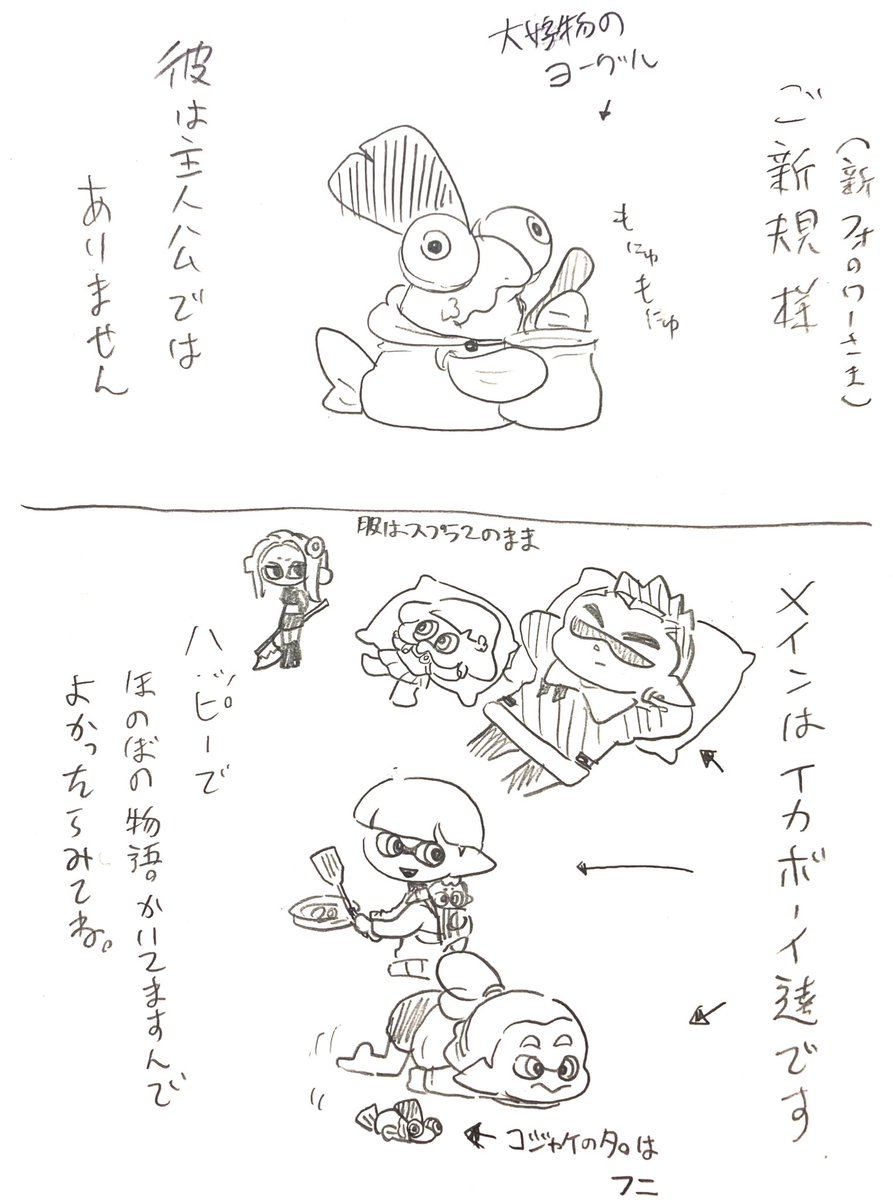 (新フォロワーさま)
ご新規様
大好物の
ヨーグル
もにゅもにゅ
彼は主人公では
ありません
服はスプラ2のまま
メインはイカボーイ達です
ハッピーで
ほのぼの物語。かいてますんで
よかったらみてね。
コジャケの名は
フニ